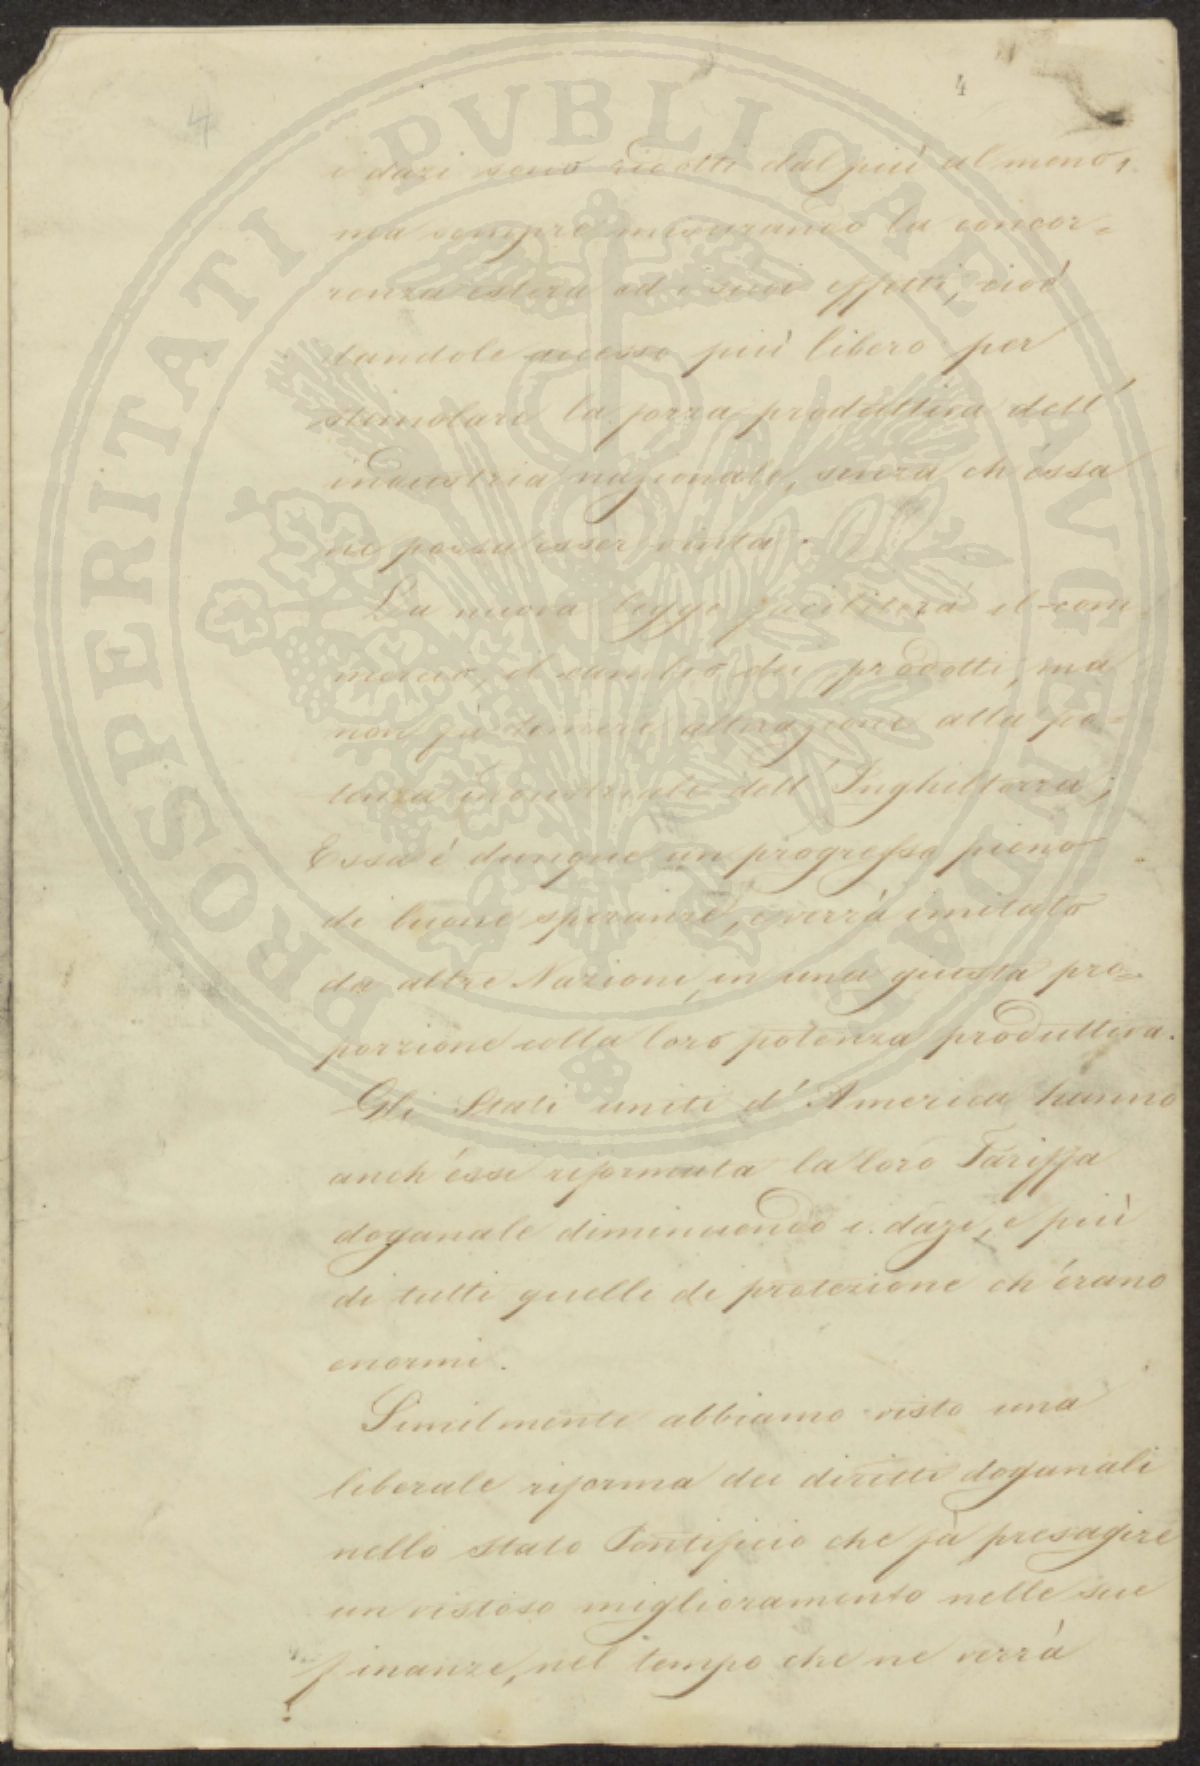 4 4
i dazi sono ridotti dal più al meno,
ma sempre misurando la concor=
renza estera ed i suoi effetti, cioè
dandole accesso più libero per
stimolare la forza produttiva dell'
industria nazionale, senza ch'essa
ne possa esser vinta.
La nuova legge faciliterà il com
mercio, il cambio dei prodotti, ma
non fà temere alterazione alla po=
tenza industriale dell'Inghilterra;
Essa è dunque un progresso pieno
di buone speranze, e verrà imitato
da altre Nazioni, in una giusta pro=
porzione colla loro potenza produttiva.
Gli Stati uniti d'America hanno
anch'essi riformata la loro Tariffa
doganale diminuendo i dazi, e più
di tutti quelli di protezione ch'erano
enormi.
Similmente abbiamo visto una
liberale riforma dei diritti doganali
nello stato Pontificio che fà presagire
un vistoso miglioramento nelle sue
finanze, nel tempo che ne verrà
PROSPERITATI PVBLICAE AVGENDAE